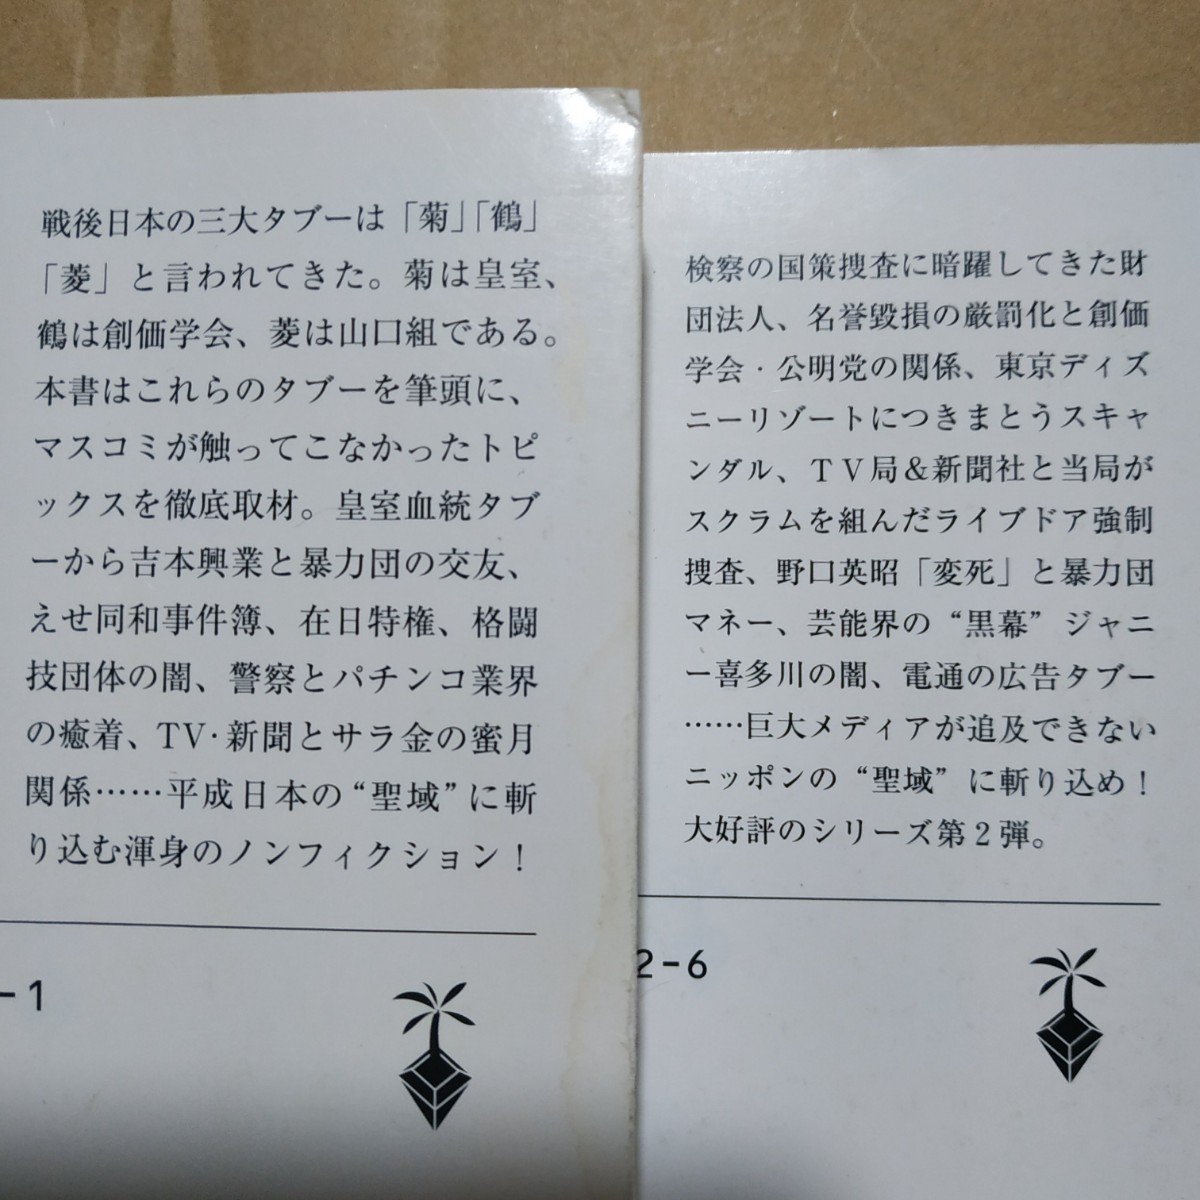 戦後日本の三大タブーは「菊」「鶴」
「菱」と言われてきた。菊は皇室、
鶴は創価学会、菱は山口組である。
本書はこれらのタブーを筆頭に、
マスコミが触ってこなかったトピ
ックスを徹底取材。皇室血統タブ
ーから吉本興業と暴力団の交友、
えせ同和事件簿、在日特権、格闘
技団体の闇、警察とパチンコ業界
の癒着、TV・新聞とサラ金の蜜月
関係……平成日本の“聖域”に斬
り込む渾身のノンフィクション!
-1
検察の国策捜査に暗躍してきた財
団法人、名誉毀損の厳罰化と創価
学会・公明党の関係、東京ディズ
ニーリゾートにつきまとうスキャ
ンダル、TV局&新聞社と当局が
スクラムを組んだライブドア強制
捜査、野口英昭「変死」と暴力団
マネー、芸能界の“黒幕”ジャニ
ー喜多川の闇、電通の広告タブー
……巨大メディアが追及できない
ニッポンの“聖域”に斬り込め!
大好評のシリーズ第2弾。
2-6